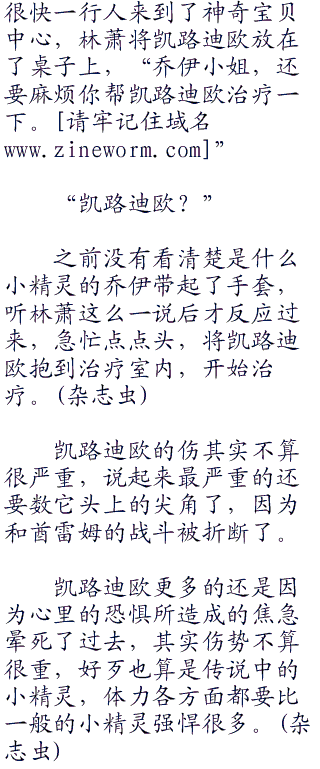 很快一行人来到了神奇宝贝
中心，林萧将凯路迪欧放在
了桌子上，“乔伊小姐，还
要麻烦你帮凯路迪欧治疗一
下。[请牢记住域名
www.zineworm.com]”
“凯路迪欧？”
之前没有看清楚是什么
小精灵的乔伊带起了手套，
听林萧这么一说后才反应过
来，急忙点点头，将凯路迪
欧抱到治疗室内，开始治
疗。(杂志虫)
凯路迪欧的伤其实不算
很严重，说起来最严重的还
要数它头上的尖角了，因为
和酋雷姆的战斗被折断了。
凯路迪欧更多的还是因
为心里的恐惧所造成的焦急
晕死了过去，其实伤势不算
很重，好歹也算是传说中的
小精灵，体力各方面都要比
一般的小精灵强悍很多。(杂
志虫)